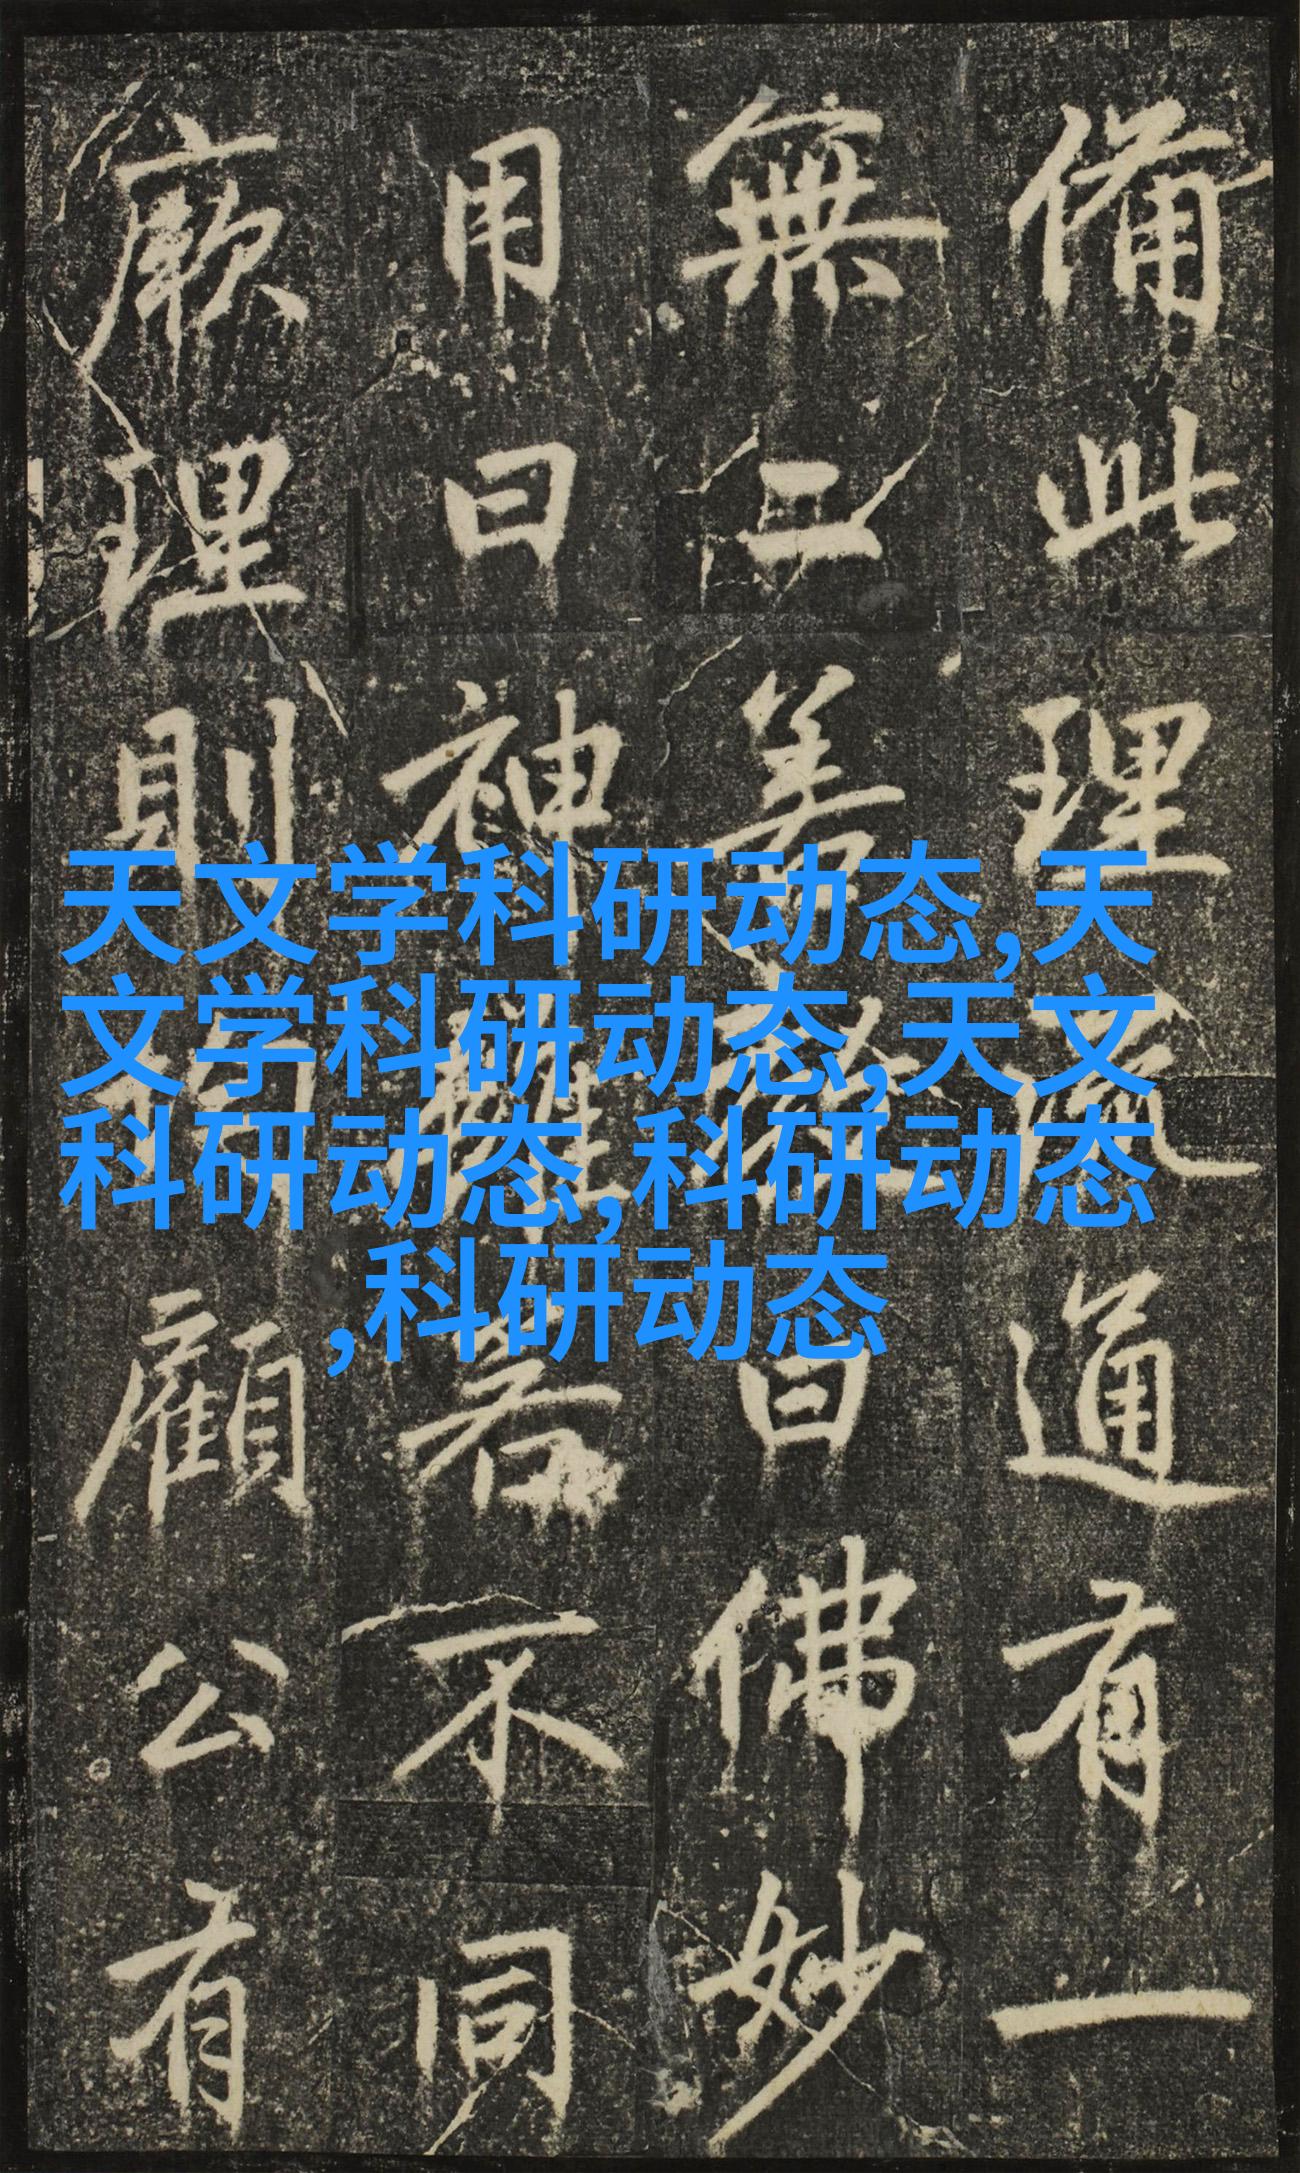 天文学科研动态,天
文学科研动态,天文
科研动态,科研动态
,科研动态
備此理通有一
無二善曰佛妙
用曰神雖若不同
厥理則均顧公有